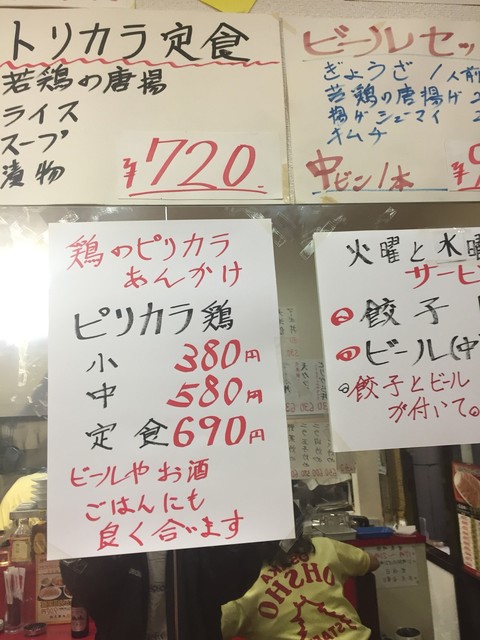 トリカラ定食
若鶏の唐揚
ライス
スープ
漬物
¥720.
ビールセッ
ぎょうざ 1人前
若鶏の唐揚ゲ 2
揚ゲシューマイ 2
キムチ
中ビン1本
鶏のピリカラ
あんかけ
ピリカラ鶏
小 380円
中 580円
定食 690円
ビールやお酒
ごはんにも
良く合います
火曜と水曜
サービ
餃子
ビール(中
餃子とビール
が付いて。
OHSHO